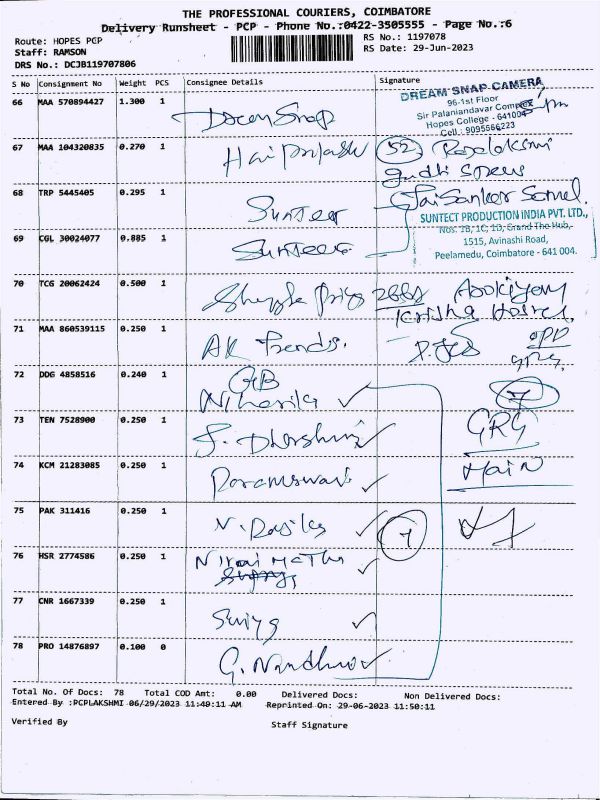 THE PROFESSIONAL COURIERS, COIMBATORE
Delivery Runsheet - PCP - Phone No.:0422-3505555 - Page No.:6
Route: HOPES PCP
Staff: RAMSON
DRS No.: DCJB119707806
RS No.: 1197078
RS Date: 29-Jun-2023
S No Consignment No Weight PCS Consignee Details Signature
66 MAA 570894427 1.300 1 Dream Snap
DREAM SNAP CAMERA
96-1st Floor
Sir Palaniandavar Complex
Hopes College - 641004
Cell : 9095566223
67 MAA 104320835 0.270 1 Hari 52
68 TRP 5445405 0.295 1 Suntec
SUNTECT PRODUCTION INDIA PVT. LTD.,
Nos. 1B, 1C, 1D, Grand The Hub,
1515, Avinashi Road,
Peelamedu, Coimbatore - 641 004.
69 CGL 30024077 0.885 1
70 TCG 20062424 0.500 1 Priya
71 MAA 860539115 0.250 1 AK Trends. OPP
72 DDG 4858516 0.240 1 GB
Niharika 7
73 TEN 7528900 0.250 1 GRG
74 KCM 21283085 0.250 1 Parameswari Main
75 PAK 311416 0.250 1 7
76 HSR 2774586 0.250 1
77 CNR 1667339 0.250 1
78 PRO 14876897 0.100 0 G. Nandhini
Total No. Of Docs: 78 Total COD Amt: 0.00 Delivered Docs: Non Delivered Docs:
Entered By :PCPLAKSHMI 06/29/2023 11:49:11 AM Reprinted On: 29-06-2023 11:50:11
Verified By Staff Signature